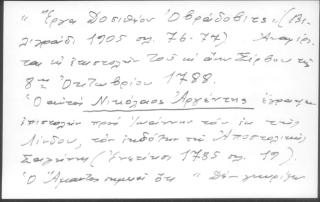 " Ἔργα Δοσιθέου Ὀβράδοβιτς" (Βε-
λιγράδι 1905 σελ. 76-77)
ται κ ἐπιστολή τοῦ κ ἄνω Σέρβου τῆς
8ης Ὀκτωβρίου 1788.
Ὁ αὐτός Νικόλαος Ἀργέντης ἔγραψε
ἐπιστολήν πρός Ἰωάννην τόν ἐκ τῆς
Λίνδου, τόν ἐκδότην τῆς Ἀποστολικῆς
Σαγήνης (Ἐνετίησι 1785 σελ. 19).
Ὁ Ἄμαντος σημειοῖ ὅτι " Δέν γνωρίζω